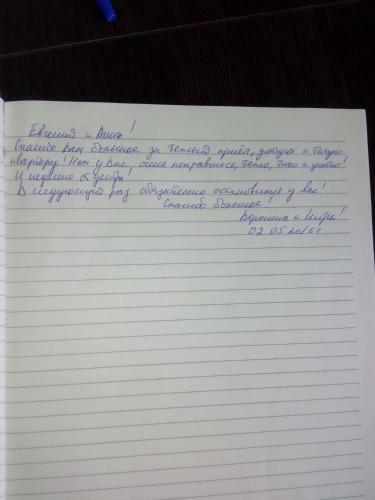 Евгений и Анна!
Спасибо Вам большое за теплый приём, уютную и тихую
квартиру! Нам у Вас, очень понравилось, тепло, тихо и уютно!
И недалеко от центра!
В следующий раз обязательно остановимся у вас!
Спасибо большое!
и
02 05